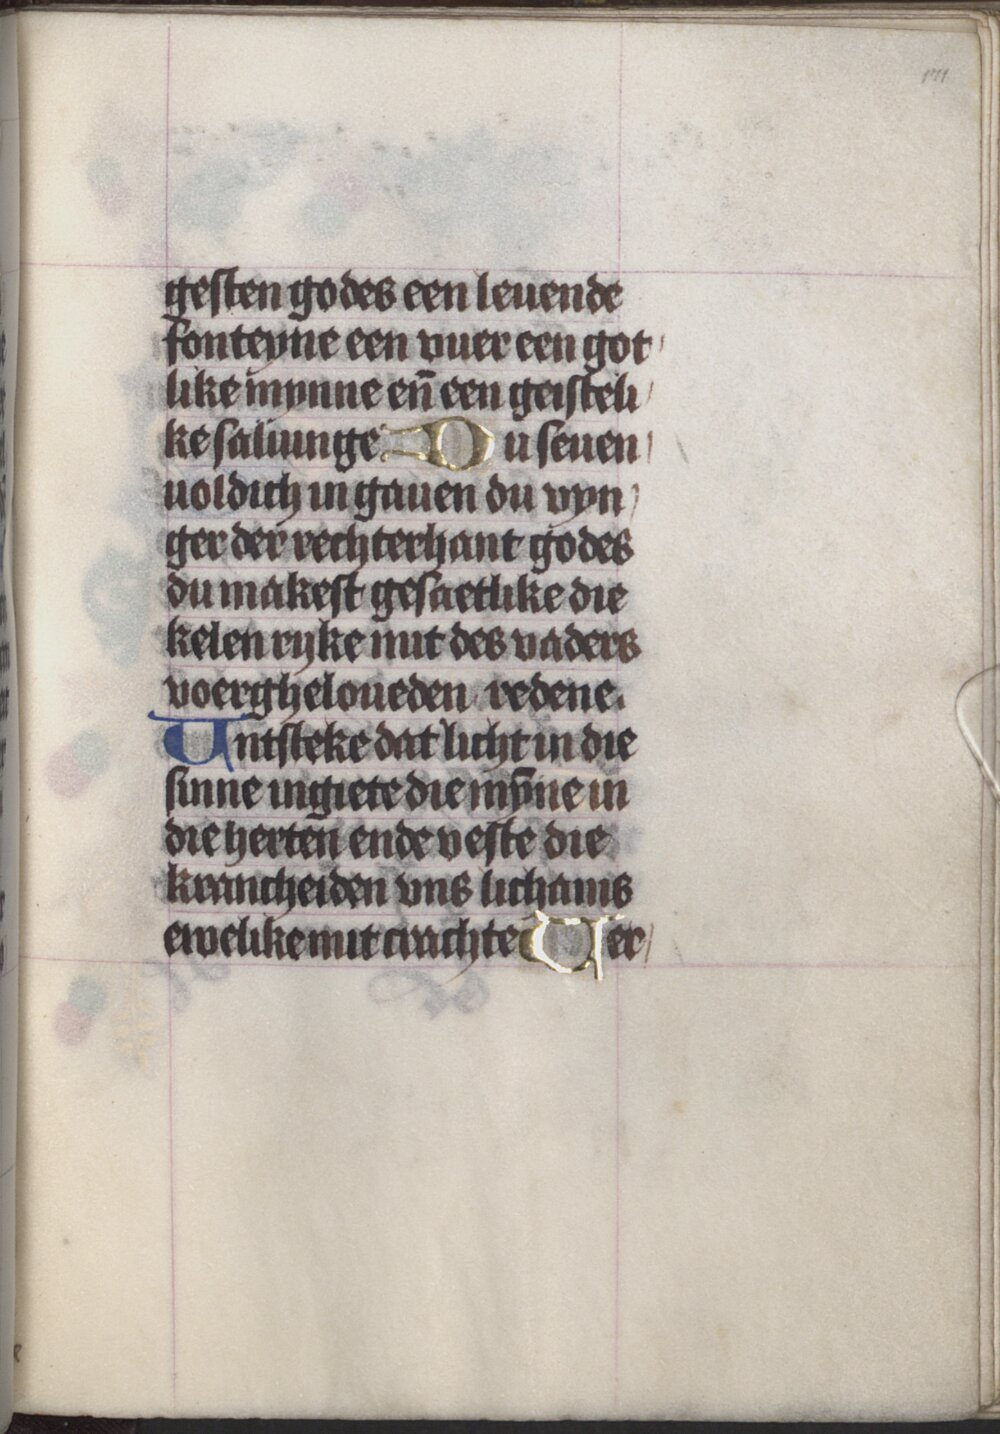 171
gesten godes een leuende
fonteyne een vuer een got
like mynne en̄ een geisteli
ke saluunge Du seuen
uoldich in gauen du vyn
ger der rechterhant godes
du makest gesaetlike die
kelen ryke mit des vaders
voergheloueden redene.
Untsteke dat licht in die
sinne ingiete die mȳne in
die herten ende veste die
krancheiden vns lichams
ewelike mit crachte Uer